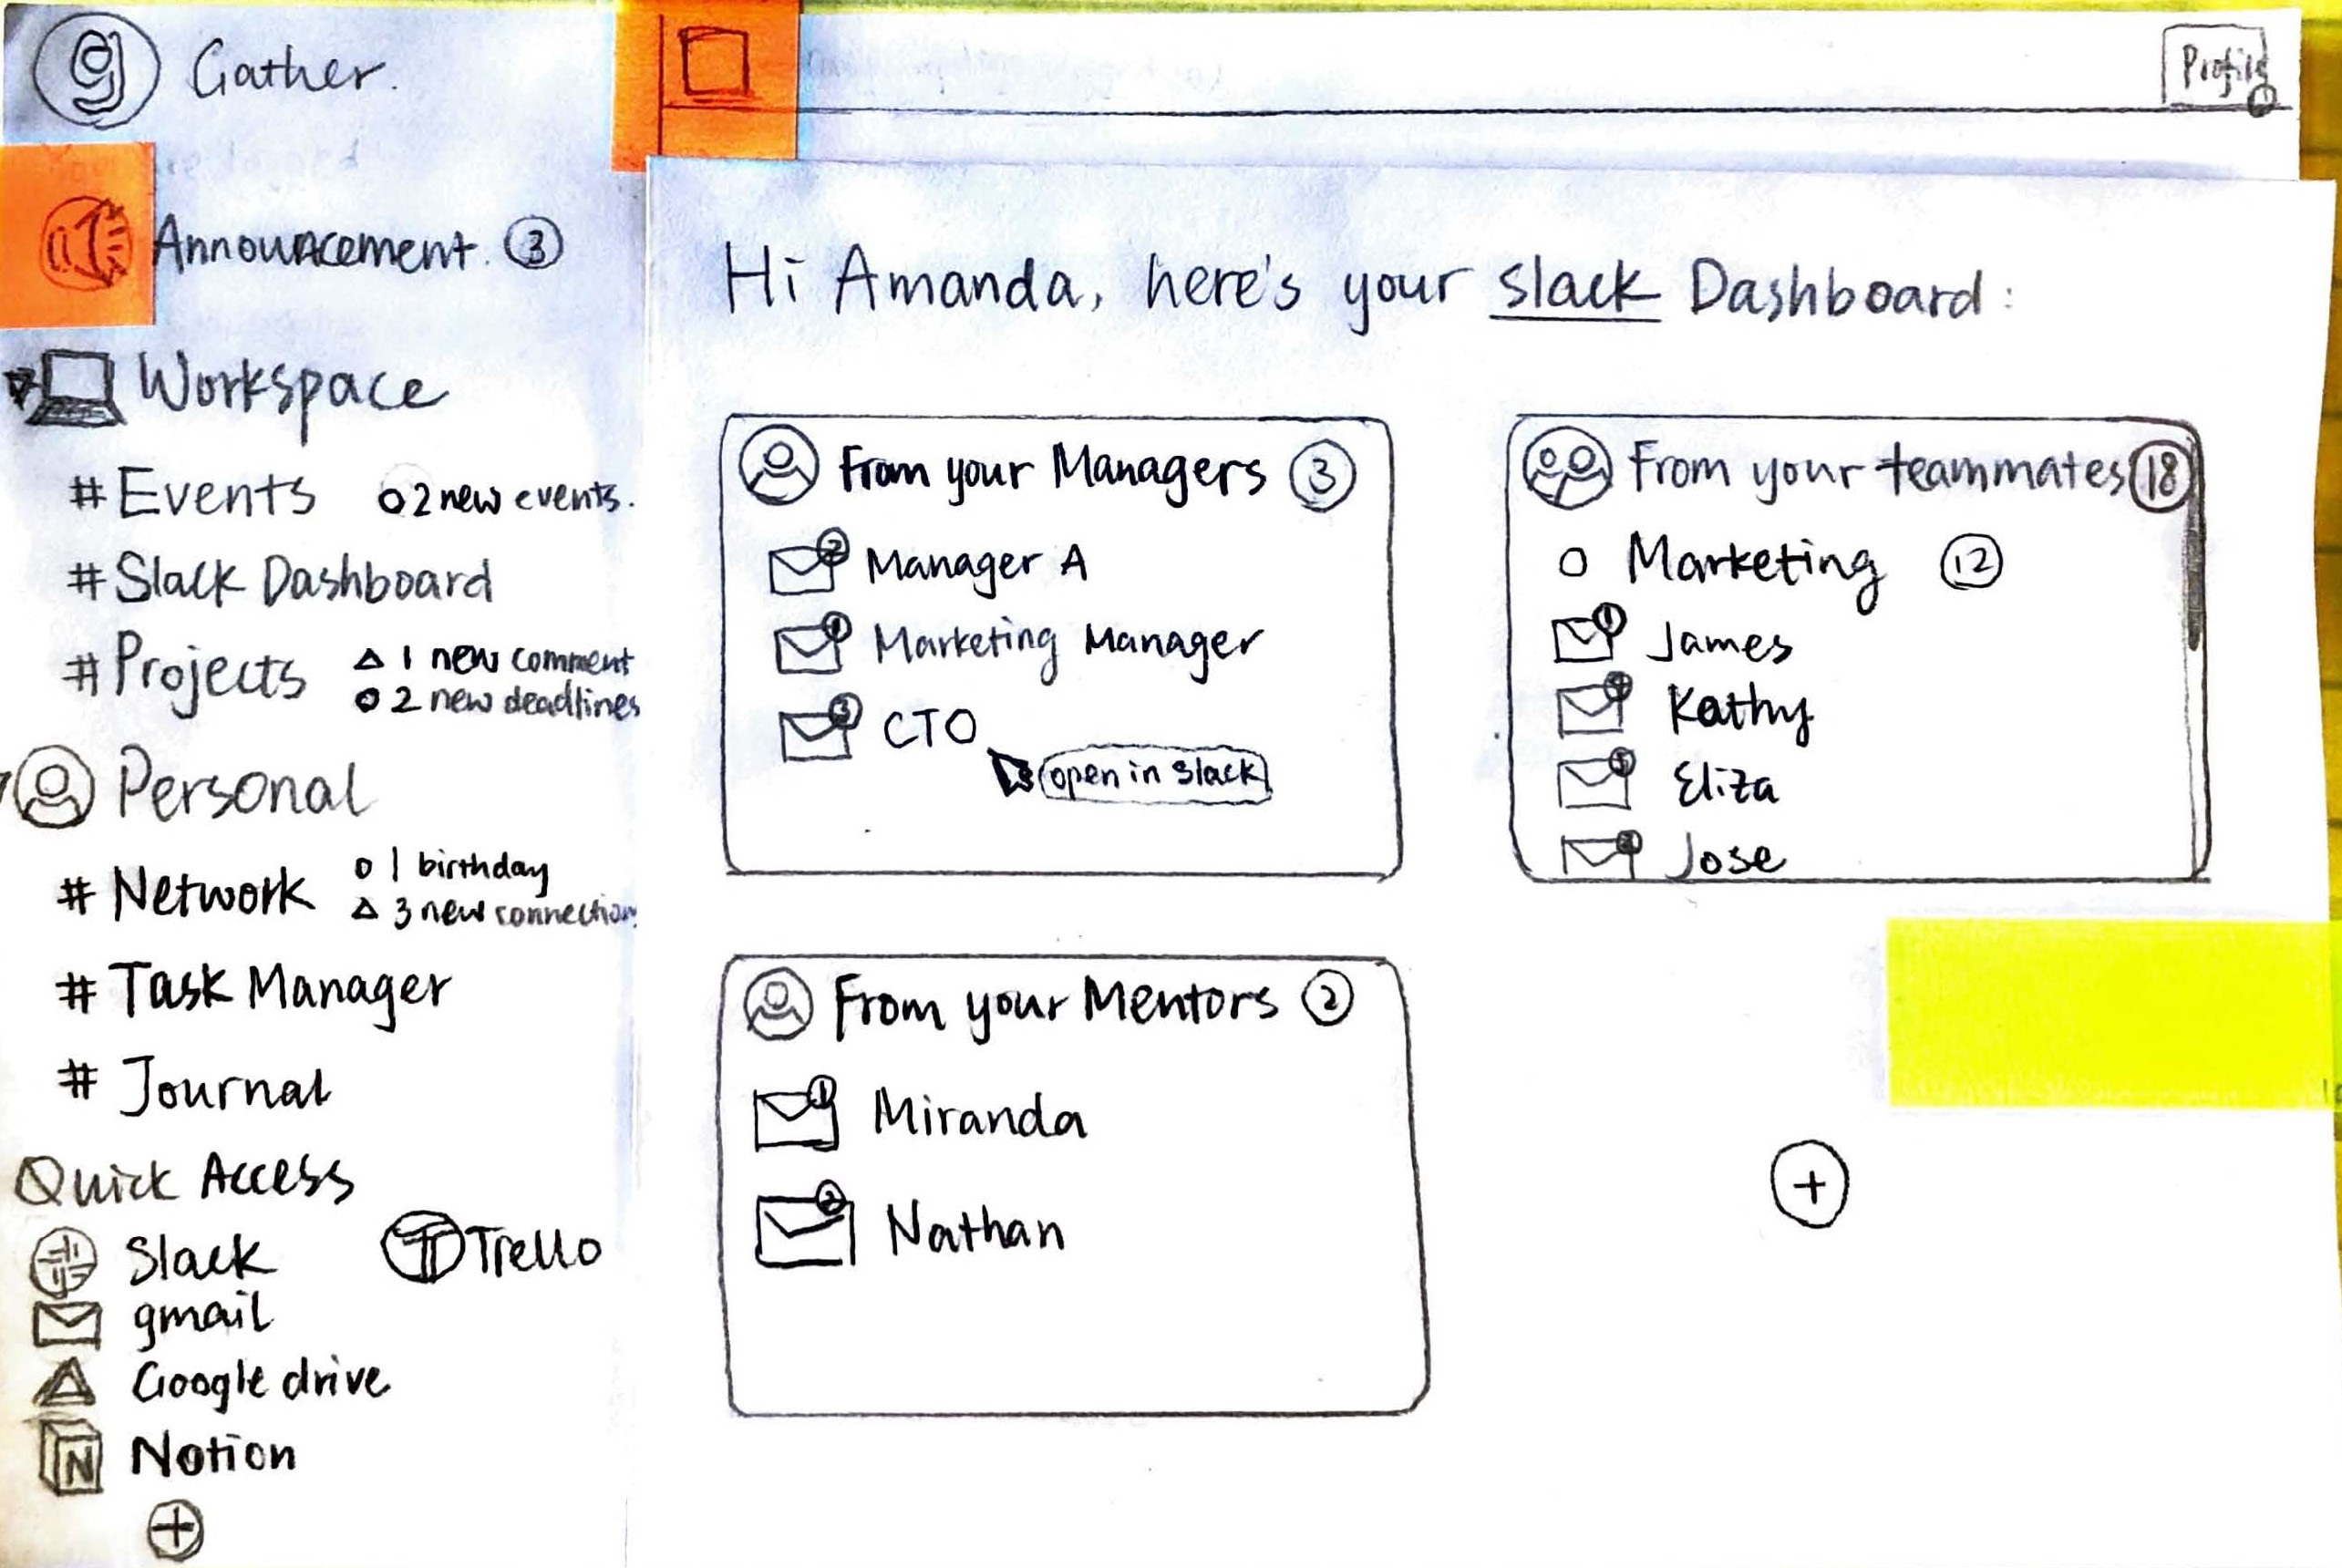 g Gather.
Profile
Announcement. 3
Workspace
# Events o 2 new events.
# Slack Dashboard
# Projects △ 1 new comment
o 2 new deadlines
Personal
# Network o 1 birthday
△ 3 new connection
# Task Manager
# Journal
Quick Access
Slack
T Trello
gmail
Google drive
N Notion
+
Hi Amanda, here's your slack Dashboard:
From your Managers 3
2 Manager A
1 Marketing Manager
3 CTO
open in slack
From your teammates 18
o Marketing 12
1 James
Kathy
5 Eliza
Jose
From your Mentors 2
1 Miranda
2 Nathan
+